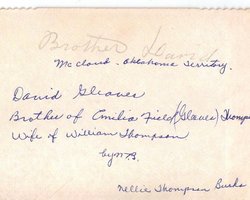 Brother David
McCloud - Oklahoma Territory.
David Gleaves
Brother of Emilia Field (Gleaves) Thomps
Wife of William Thompson
by NTB.
Nellie Thompson Burks